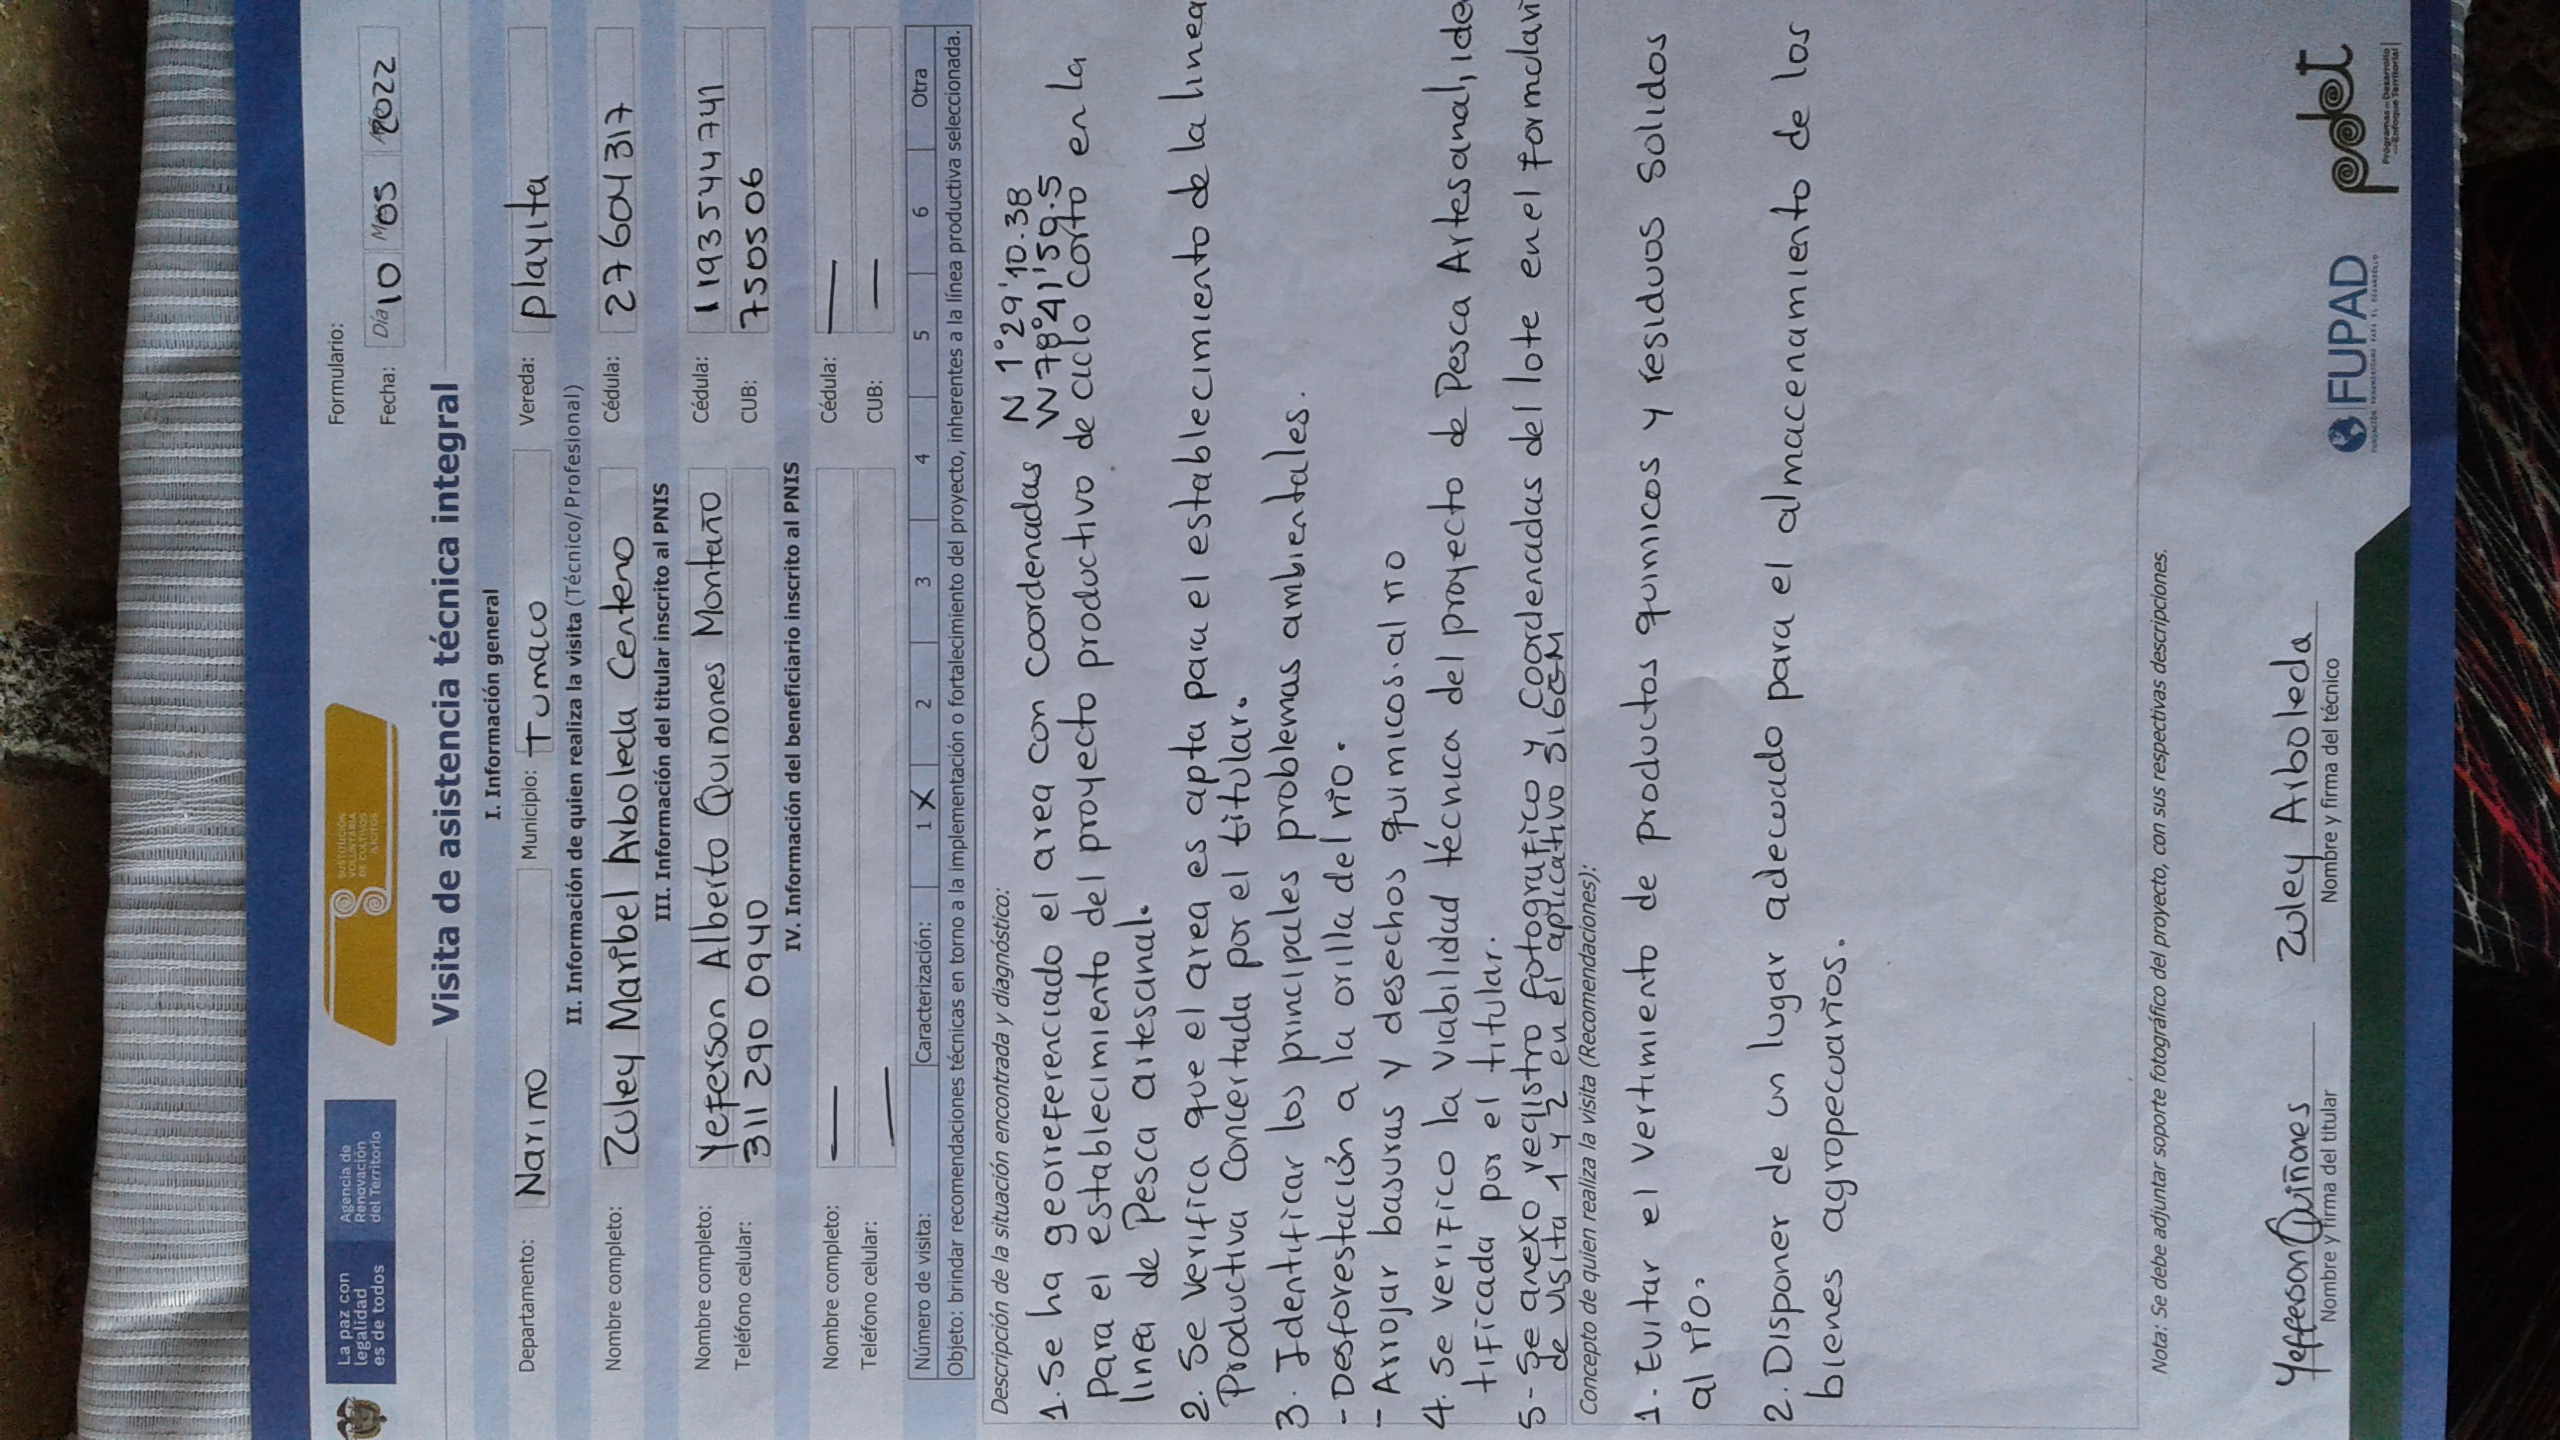 La paz con
legalidad
es de todos
Agencia de
Renovación
del Territorio
SUSTITUCIÓN
VOLUNTARIA
DE CULTIVOS
ILÍCITOS
Formulario:
Fecha: Día 10 Mes 05 2022
Visita de asistencia técnica integral
I. Información general
Departamento: Nariño Municipio: Tumaco Vereda: playita
II. Información de quien realiza la visita (Técnico/ Profesional)
Nombre completo: Zuley Maribel Arboleda Centeno Cédula: 27604317
III. Información del titular inscrito al PNIS
Nombre completo: Yeferson Alberto Quinones Montaño Cédula: 1193544741
Teléfono celular: 311 290 0940 CUB: 750506
IV. Información del beneficiario inscrito al PNIS
Nombre completo: — Cédula: —
Teléfono celular: — CUB: —
Número de visita: Caracterización: 1 X 2 3 4 5 6 Otra
Objeto: brindar recomendaciones técnicas en torno a la implementación o fortalecimiento del proyecto, inherentes a la línea productiva seleccionada.
Descripción de la situación encontrada y diagnóstico:
1. Se ha georreferenciado el area con coordenadas N 1°29'10.38 W78°41'59.5
para el establecimiento del proyecto productivo de ciclo corto en la
linea de Pesca artesanal.
2. Se verifica que el area es apta para el establecimiento de la linea
Productiva Concertada por el titular.
3. Identificar los principales problemas ambientales.
- Desforestación a la orilla del rio.
- Arrojar basuras y desechos quimicos. al rio
4. Se verifico la viabilidad técnica del proyecto de Pesca Artesanal, iden
tificada por el titular.
5- Se anexo registro fotografico y coordenadas del lote en el formulari
de visita 1 y 2 en el aplicativo SIGGM
Concepto de quien realiza la visita (Recomendaciones):
1. Evitar el vertimiento de productos quimicos y residuos solidos
al rio.
2. Disponer de un lugar adecuado para el almacenamiento de los
bienes agropecuarios.
Nota: Se debe adjuntar soporte fotográfico del proyecto, con sus respectivas descripciones.
Yefferson Quiñones
Nombre y firma del titular
Zuley Arboleda
Nombre y firma del técnico
FUPAD
FUNDACIÓN PANAMERICANA PARA EL DESARROLLO
pdet
Programas de Desarrollo
con Enfoque Territorial